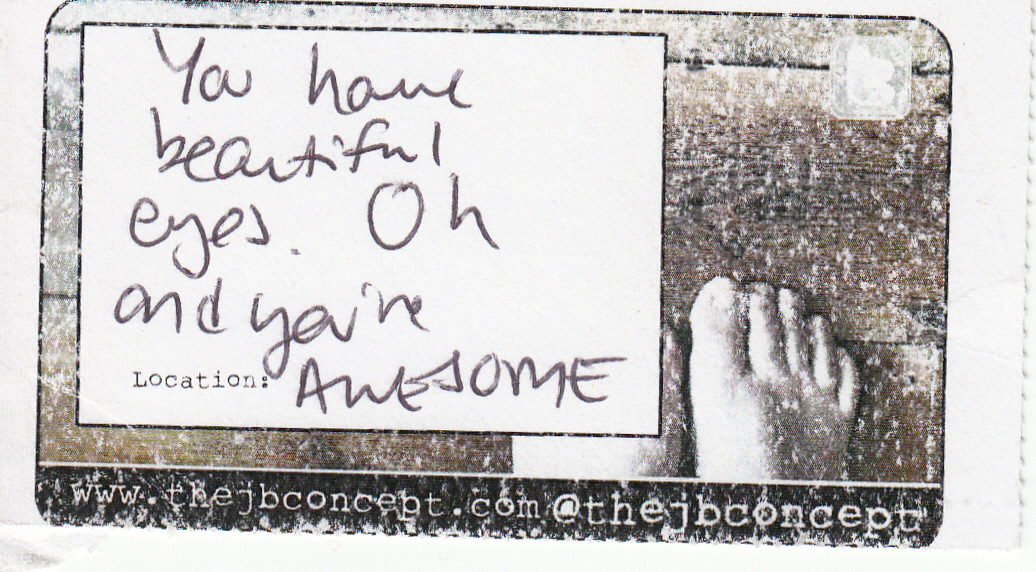 You have
beautiful
eyes. Oh
and you're
Location: AWESOME
www.thejbconcept.com @thejbconcept